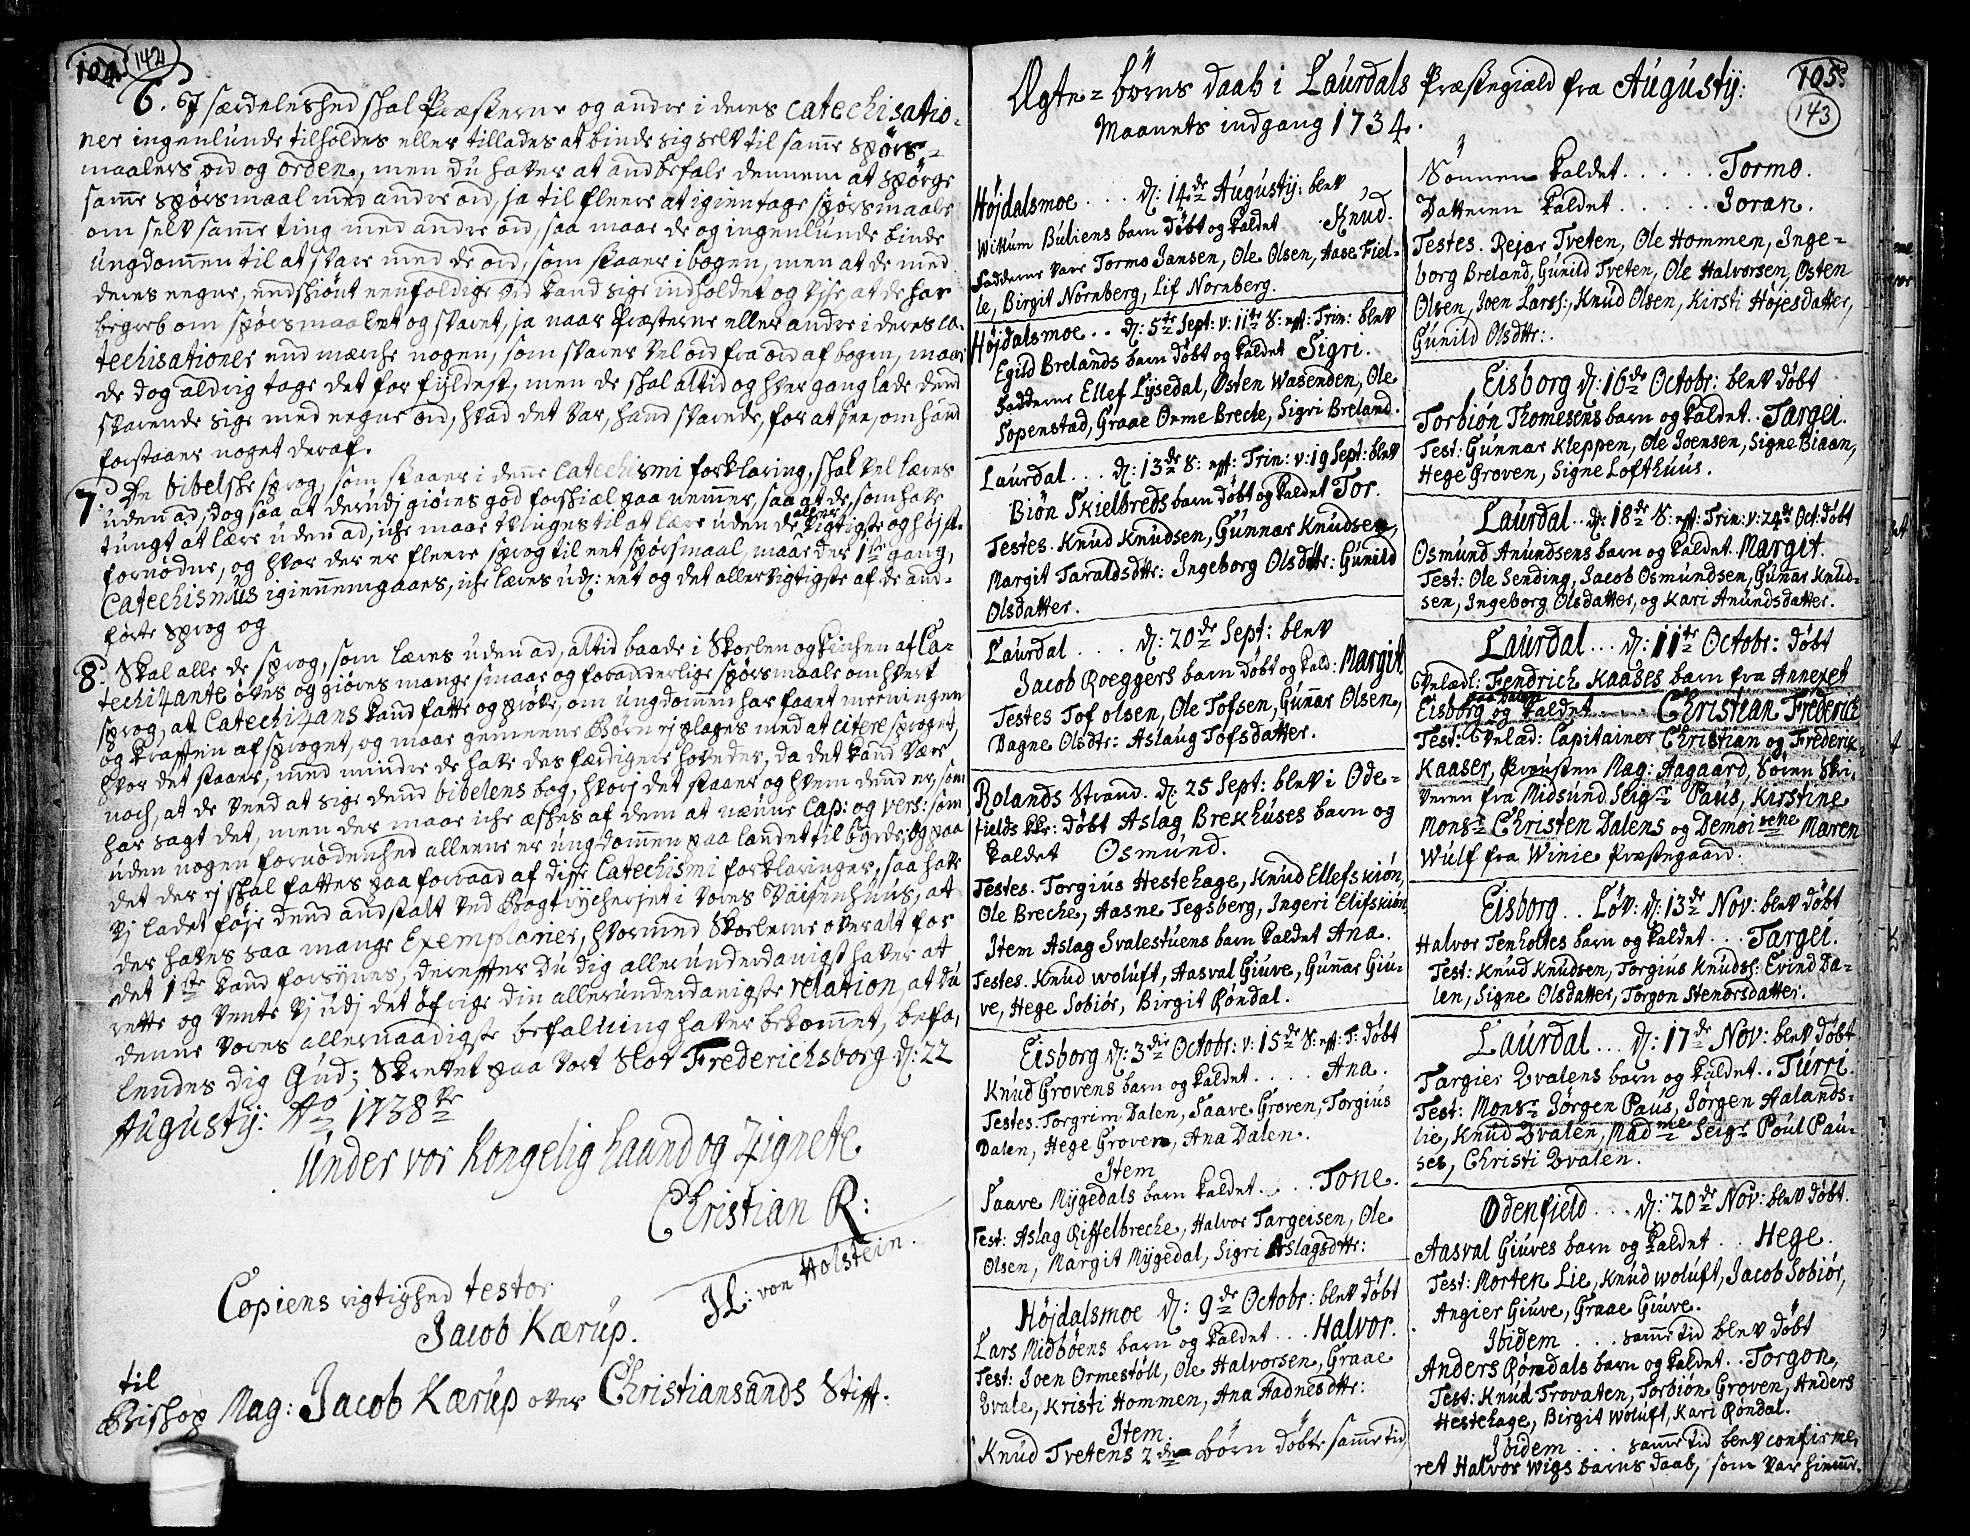 104. 142
6. I særdeleshed skal Præsterne og andre i deres Catechisatio-
ner ingenlunde tilholdes eller tillades at binde sig selv til samme spørs-
maalers ord og orden, men du haver at anbefale dennem at spørge
samme spørsmaal med andre ord, ja til fleere at igientage spørsmaale
om selv samme ting med andre ord, saa maae de og ingenlunde binde
ungdommen til at svare med de ord, som staaer i bogen, men at de med
deres eegne, endskiønt eenfoldige ord kand sige indholdet og vise, at de har
begreb om spørsmaalet og svaret, ja naar Præsterne eller andre i deres Ca-
techisationer end mærche nogen, som svarer vel ord fra ord af bogen, maae
de dog aldrig tage det for fyldest, men de skal altid og hver gang lade dend
svarende sige med eegne ord, hvad det var, hand svarede, for at see, om hand
forstaaer noget deraf.
7. De bibelske sprog, som staaer i denne Catechismi forklaring, skal vel læres
uden ad, dog saa at derudj giøres god forskiæl paa nemmer, saa at de, som have
tungt at lære uden ad, iche maae tvinges til at lære uden de aller vigtigste og højst-
fornødne, og hvor der er fleere sprog til eet spørsmaal, maae der 1ste gang,
Catechismus igiennemgaaes, iche læres ud: eet og det allervigtigste af de and-
førte sprog og
8. Skal alle de sprog, som læres uden ad, altid baade i Skoelen og Kirchen af Ca-
techizante øves og giøres mange smaae og foranderlige spørsmaale om hvert
sprog, at Catechizans kand fatte og prøve, om ungdommen har faaet meeningen
og Krafften af sproget, og maae gemeene Børn ej plages med at citere sproget,
hvor det staaer, med mindre de have des færdigere hoveder, da det kand være
noch, at de veed at sige dend bibelens bog, hvorj det staaer og hvem dend er, som
har sagt det, men der maae iche æskes af dem at nævne Cap: og vers: som
uden nogen fornødenhed alleene er ungdommen paa landet til byrde; og paa
det der ej skal fattes paa forraad af disse Catechismi forklaringer, saa have
Vj ladet føje dend andstalt ved Bogtrycheriet i vores Vaisenhuus, at
der haves saa mange Exemplarier, hvormed Skoelerne overalt for
det 1ste kand forsynes, derefter Du dig allerunderdanigst haver at
rette og vente Vj udj det øfrige din allerunderdanigste relation, at Du
denne vores allernaadigste befalning haver bekommet, befa-
lendes dig Gud; Skrevet paa vort Slot Frederichsborg d: 22
Augustij: Ao 1738 te
Under vor Kongelig haand og Zignete
Christian R:
JL: von Holstein.
Copiens rigtighed testor
Jacob Kærup.
til
Bishop Mag: Jacob Kærup over Christiansands Stift.
105. 143
Ægte-børns daab i Laurdals Præstegield fra Augustij:
Maanets indgang 1734.
Højdalsmoe . . . d: 14de Augustij: blev
Wikum Buliens barn døbt og kaldet Knud.
Fadderne vare Tormo Jansen, Ole Olsen, Aase Fiel-
le, Birgit Nornberg, Lif Nornberg.
Højdalsmoe . . d: 5te Sept: v: 11te S: eft: Trin: blev
Egild Brelands barn døbt og kaldet Sigri.
Fadderne Ellef Lysedal, Østen Wasenden, Ole
Sopenstad, Graae Orme Breche, Sigri Breland.
Laurdal . . . d: 13de S: eft: Trin: v: 19 Sept: blev
Biøn Skielbreds barn døbt og kaldet Tor.
Testes. Knud Knudsen, Gunnar Knudsen,
Margit Taraldsdtr: Ingeborg Olsdtr: Gunild
Olsdatter.
Laurdal . . . . d: 20de Sept: blev
Jacob Roeggers barn døbt og kald: Margit
Testes Tof Olsen, Ole Tofsen, Gunnar Olsen,
Dagne Olsdtr: Aslaug Tofsdatter.
Rolands Strand. d: 25 Sept: blev i Ode-
fields Kke: døbt Aslag Brekhuses barn og
kaldet Osmund.
Testes. Torgius Hestehage, Knud Ellefskiøn,
Ole Breche, Aasne Tegsberg, Ingeri Elifskiøn
Item Aslag Svalestuens barn kaldet Ana.
Testes. Knud Woluft, Aasval Giuve, Gunnar Giu-
ve, Hege Sobiør, Birgit Røndal.
Eisborg d: 3die Octobr: v: 15de S: eft: T: døbt
Knud Grovens barn og kaldet . . . . . Ana.
Testes: Torgrim Dalen, Saave Groven, Torgius
Dalen, Hege Groven, Ana Dalen.
Item
Saave Mygedals barn kaldet . . . . Tone.
Test: Aslag Riffelbreche, Halvor Targeisen, Ole
Olsen, Margit Mygedal, Sigri Aslagsdtr:
Højdalsmoe d: 9de Octobr: blev døbt
Lars Midbøens barn og kaldet . . . Halvor.
Test: Joen Ormestøll, Ole Halvorsen, Graae
Qvale, Kristi Hommen, Ana Aadnesdtr:
Item.
Knud Tvetens 2de børn døbte samme tid
Sønnen kaldet . . . . . Tormo.
Datteren kaldet . . . . . Joran.
Testes. Rejar Tveten, Ole Hommen, Inge-
borg Breland, Gunild Tveten, Ole Halvorsen, Østen
Olsen, Joen Larss:, Knud Olsen, Kirsti Højesdatter,
Gunild Olsdtr:.
Eisborg d: 16de Octobr: blev døbt
Torbiøn Thomesens barn og kaldet . . Targei.
Test: Gunnar Kleppen, Ole Joensen, Signe Biaan,
Hege Groven, Signe Lofthuus.
Laurdal . . d: 18de S: eft: Trin: v: 24de Oct: døbt
Osmund Anundsens barn og kaldet Margit.
Test: Ole Sending, Jacob Osmundsen, Gunnar Knud-
sen, Ingeborg Olsdatter, og Kari Anundsdatter.
Laurdal . . . d: 11te Octobr: døbt
Velædl: Fendrich Kaases barn fra Annexet
Eisborg paa Dalen og kaldet . . . Christian Frederich
Test: Velæd: Capitainer Christian og Frederik
Kaaser, Provsten Mag: Aagaard, Søren Skri-
veren fra Midsund, Seigr Paus, Kirstine
Monsr Christen Dalens og Demoiselle Maren
Wulf fra Winie Præstegaard.
Eisborg . . Løv: d: 13de Nov: blev døbt
Halvor Tenholtes barn og kaldet . . . Targei.
Test: Knud Knudsen, Torgius Knuds: Evind Da-
len, Signe Olsdatter, Torgon Stenorsdatter.
Laurdal . . . d: 17de Nov: blev døbt
Targier Qvalens barn og kaldet . . Turri.
Test: Monsr Jørgen Paus, Jørgen Aalands-
lie, Knud Qvalen, Madme Seigr Poul Pau-
ses, Christi Qvalen.
Odenfield . . . d: 20de Nov: blev døbt.
Aasval Giuves barn og kaldet . . Hege.
Test: Morten Lie, Knud Woluft, Jacob Sobiør,
Angier Giuve, Graae Giuve.
Ibidem . . . samme tid blev døbt
Anders Røndals barn og kaldet . . Torgon,
Test: Knud Trovaten, Torbiøn Groven, Anders
Hestehage, Birgit Woluft, Kari Røndal.
Ibidem . . . . samme tid blev confirme-
ret Halvor Wigs barns daab, som var hiemme-